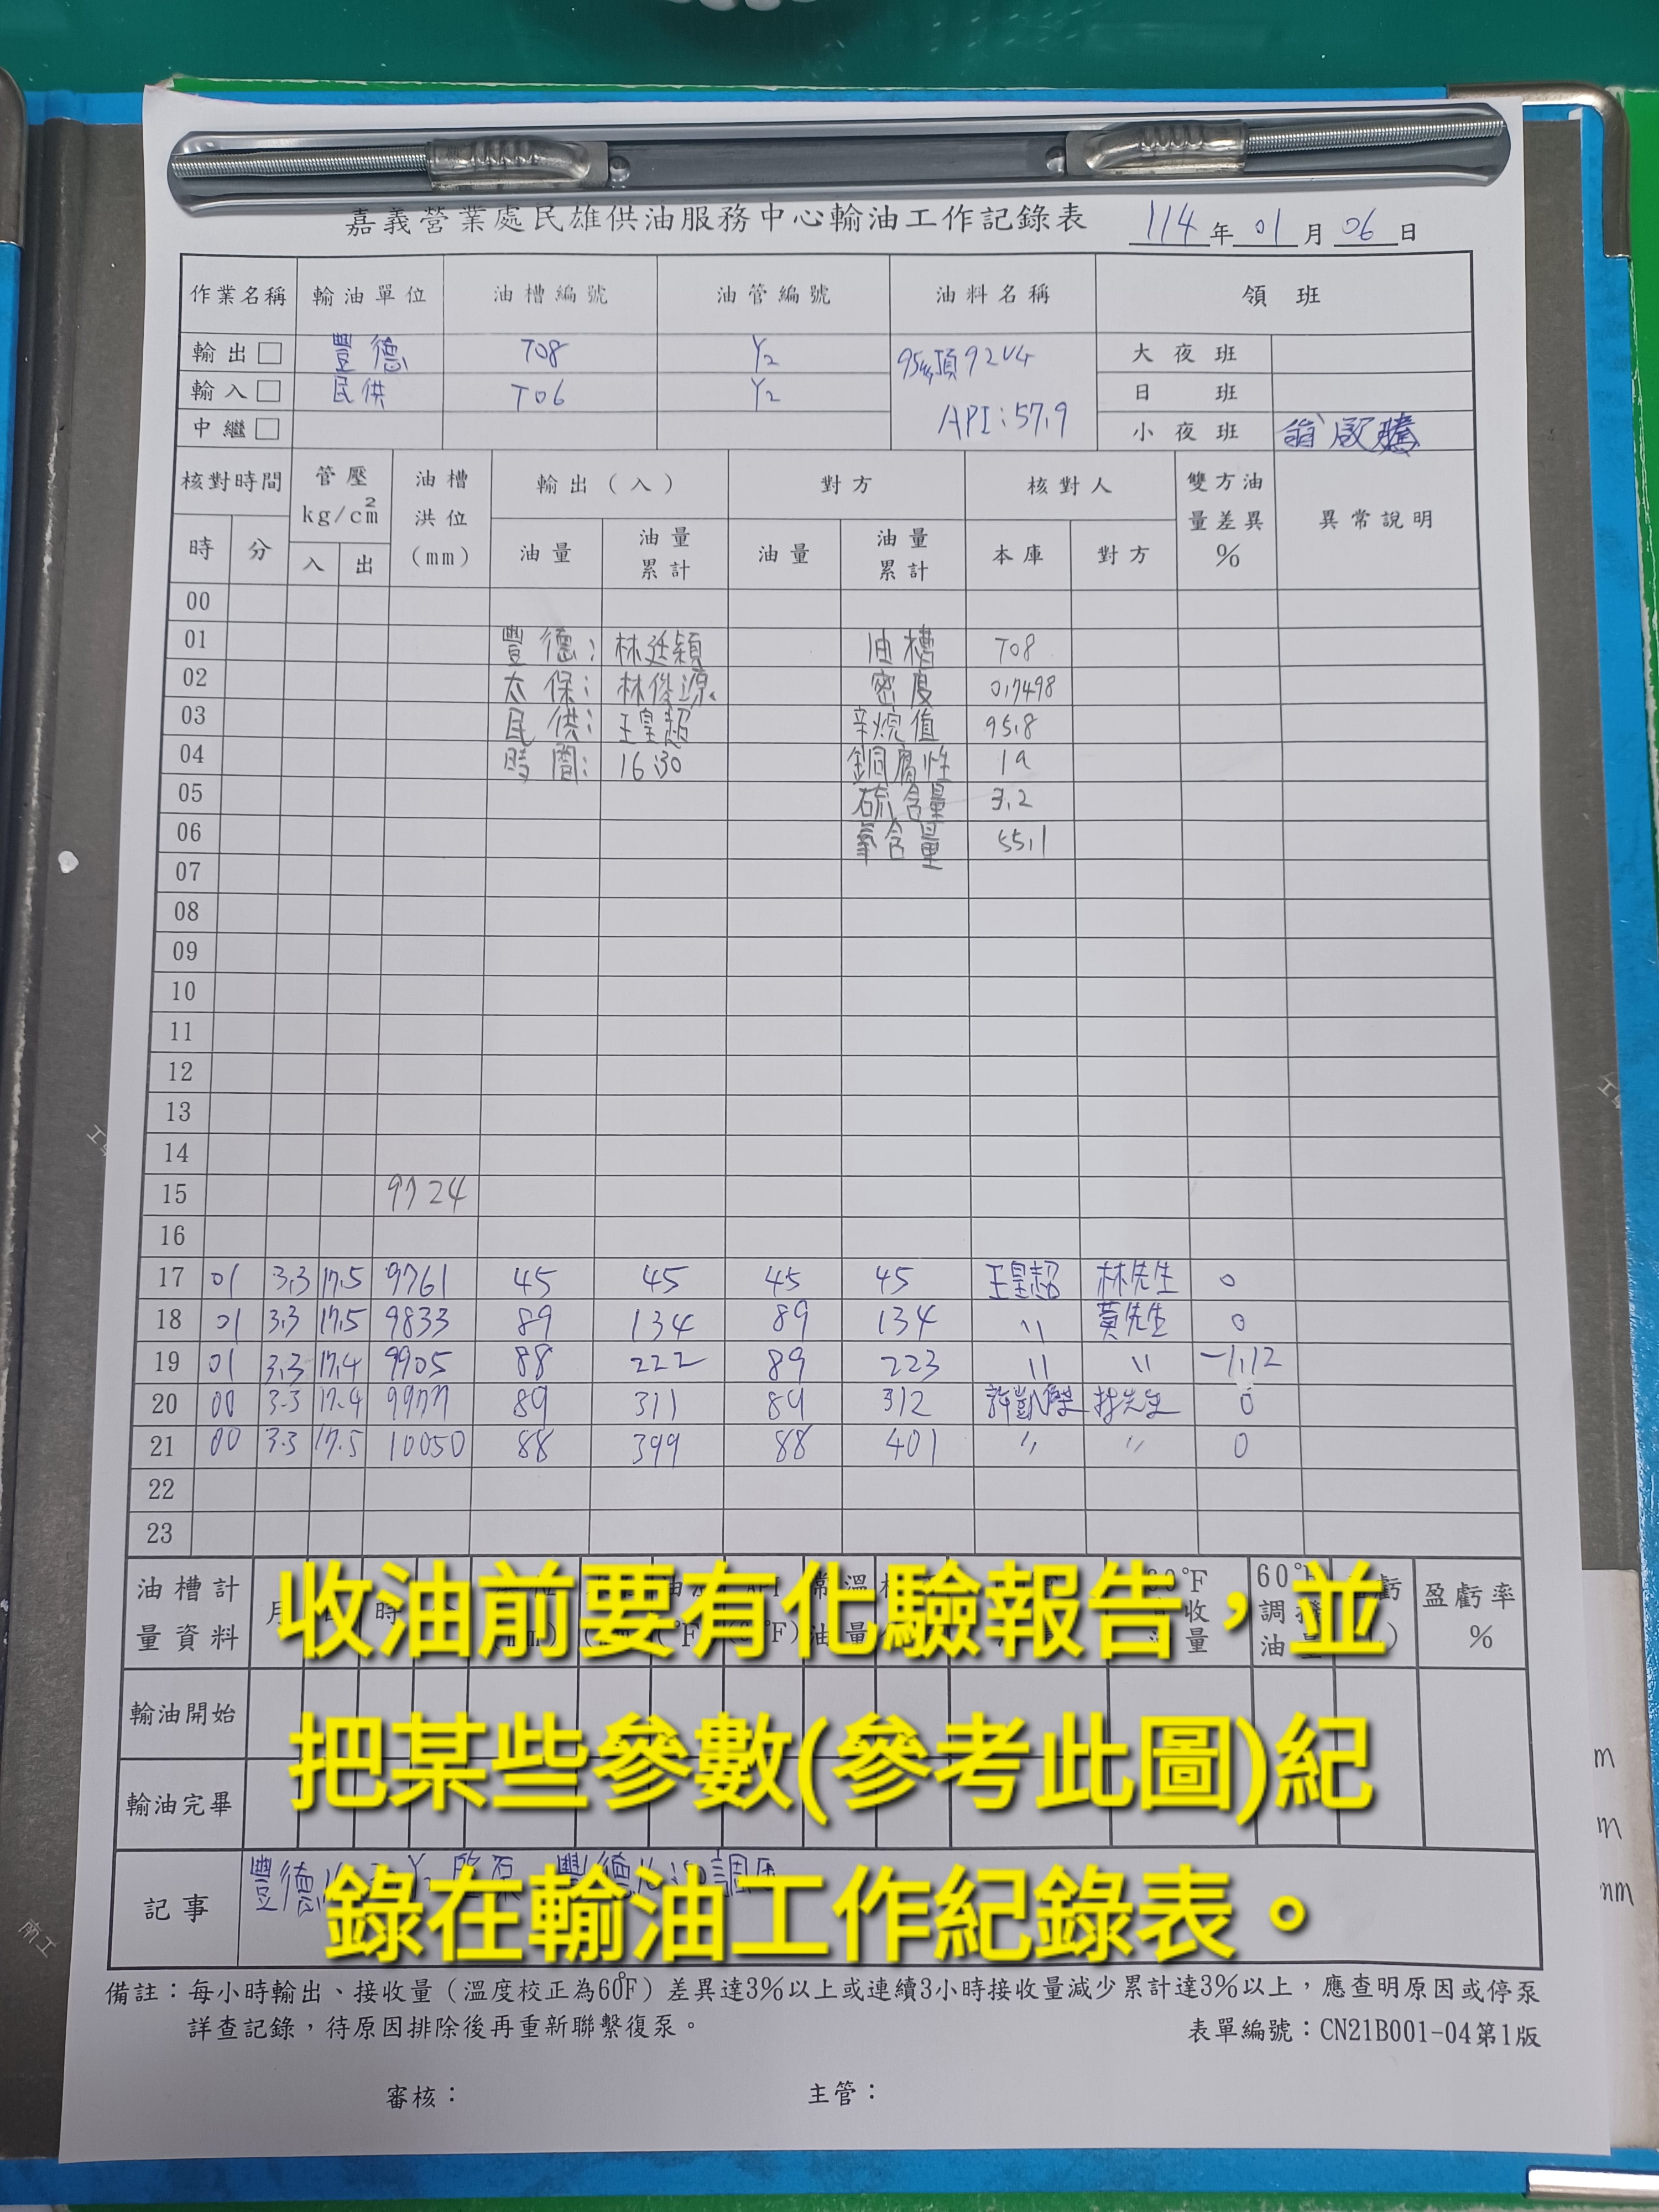 嘉義營業處民雄供油服務中心輸油工作記錄表 114年01月06日
作業名稱 輸油單位 油槽編號 油管編號 油料名稱 領班
輸出□ 豐德 T08 Y2 大夜班
輸入□ 民供 T06 Y2 API:57.9 日班
中繼□ 小夜班
核對時間 管壓 kg/cm² 油槽洪位(mm) 輸出(入) 對方 核對人 雙方油量差異% 異常說明
時 分 入 出 油量 油量累計 油量 油量累計 本庫 對方
00
01 豐德: 林廷穎 油槽 T08
02 太保: 林俊源 密度 0.7498
03 民供: 王皇超 辛烷值 95.8
04 時間: 16:30 銅腐性 1a
05 硫含量 3.2
06 氧含量 55.1
07
08
09
10
11
12
13
14
15 9724
16
17 01 3.3 17.5 9761 45 45 45 45 王皇超 林先生 0
18 01 3.3 17.5 9833 89 134 89 134 〃 黃先生 0
19 01 3.3 17.4 9905 88 222 89 223 〃 〃 -1.12
20 00 3.3 17.4 9977 89 311 89 312 許凱傑 林先生 0
21 00 3.3 17.5 10050 88 399 88 401 〃 〃 0
22
23
油槽計量資料 盈虧率%
輸油開始
輸油完畢
記事
收油前要有化驗報告，並
把某些參數(參考此圖)紀
錄在輸油工作紀錄表。
備註：每小時輸出、接收量（溫度校正為60℉）差異達3%以上或連續3小時接收量減少累計達3%以上，應查明原因或停泵
詳查記錄，待原因排除後再重新聯繫復泵。
表單編號：CN21B001-04第1版
審核： 主管：